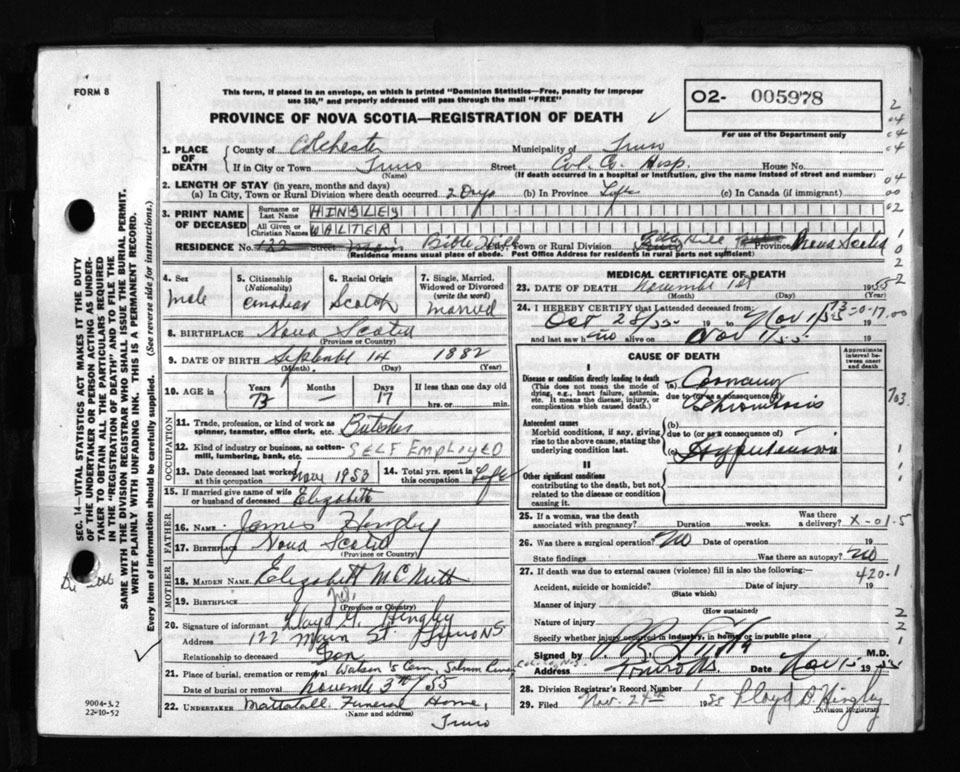 FORM 8
This form, if placed in an envelope, on which is printed "Dominion Statistics—Free, penalty for improper
use $50," and properly addressed will pass through the mail "FREE"
PROVINCE OF NOVA SCOTIA—REGISTRATION OF DEATH
02- 005978
For use of the Department only
1. PLACE OF DEATH
County of Colchester Municipality of Truro
If in City or Town Truro Street Col. Co. Hosp. House No.
(Name) (If death occurred in a hospital or institution, give the name instead of street and number)
2. LENGTH OF STAY (in years, months and days)
(a) In City, Town or Rural Division where death occurred 2 Days (b) In Province Life (c) In Canada (if immigrant)
3. PRINT NAME OF DECEASED
Surname or Last Name HINGLEY
All Given or Christian Names WALTER
RESIDENCE No. 122 Street Main Bible Hill City, Town or Rural Division Bible Hill Province Nova Scotia
(Residence means usual place of abode. Post Office Address for residents in rural parts not sufficient)
4. Sex male
5. Citizenship (Nationality) Canadian
6. Racial Origin Scotch
7. Single, Married, Widowed or Divorced (write the word) married
8. BIRTHPLACE Nova Scotia
(Province or Country)
9. DATE OF BIRTH September 14 1882
(Month) (Day) (Year)
10. AGE in Years 73 Months — Days 17 If less than one day old
hrs. or min.
OCCUPATION
11. Trade, profession, or kind of work as spinner, teamster, office clerk, etc. Butcher
12. Kind of industry or business, as cotton-mill, lumbering, bank, etc. SELF EMPLOYED
13. Date deceased last worked at this occupation Nov 1953 14. Total yrs. spent in this occupation Life
15. If married give name of wife or husband of deceased Elizabeth
FATHER
16. NAME James Hingley
17. BIRTHPLACE Nova Scotia
(Province or Country)
MOTHER
18. MAIDEN NAME Elizabeth McNutt
19. BIRTHPLACE N.S.
(Province or Country)
20. Signature of informant Lloyd G. Hingley
Address 122 Main St. Truro NS
Relationship to deceased Son
21. Place of burial, cremation or removal Watson's Cem, Salmon River, Col. Co. N.S.
Date of burial or removal November 3rd/55
22. UNDERTAKER Mattatall Funeral Home, Truro
(Name and address)
MEDICAL CERTIFICATE OF DEATH
23. DATE OF DEATH November 1st 1955
(Month) (Day) (Year)
24. I HEREBY CERTIFY that I attended deceased from:
Oct 28/55 19 to Nov 1/55
and last saw h alive on Nov 1/55 19
CAUSE OF DEATH
Approximate interval between onset and death
I
Disease or condition directly leading to death
(This does not mean the mode of dying, e.g., heart failure, asthenia, etc. It means the disease, injury, or complication which caused death.)
(a) Coronary
due to (or as a consequence of)
Thrombosis
Antecedent causes
Morbid conditions, if any, giving rise to the above cause, stating the underlying condition last.
(b)
due to (or as a consequence of)
(c) Hypertension
II
Other significant conditions
contributing to the death, but not related to the disease or condition causing it.
25. If a woman, was the death associated with pregnancy? Duration weeks. Was there a delivery?
X-01.5
26. Was there a surgical operation? No Date of operation 19
State findings Was there an autopsy? No
27. If death was due to external causes (violence) fill in also the following:—
420-1
Accident, suicide or homicide? Date of injury 19
(State which)
Manner of injury
(How sustained)
Nature of injury
Specify whether injury occurred in industry, in home or in public place
Signed by M.D.
Address Truro NS Date Nov 1 1955
28. Division Registrar's Record Number
29. Filed Nov. 24th 1955 Lloyd D. Hingley
Division Registrar
SEC. 14—VITAL STATISTICS ACT MAKES IT THE DUTY
OF THE UNDERTAKER OR PERSON ACTING AS UNDER-
TAKER TO OBTAIN ALL THE PARTICULARS REQUIRED
IN THE "REGISTRATION OF DEATH" AND TO FILE THE
SAME WITH THE DIVISION REGISTRAR WHO SHALL ISSUE THE BURIAL PERMIT.
WRITE PLAINLY WITH UNFADING INK. THIS IS A PERMANENT RECORD.
Every item of information should be carefully supplied. (See reverse side for instructions.)
9004-3.2
22-10-52
703